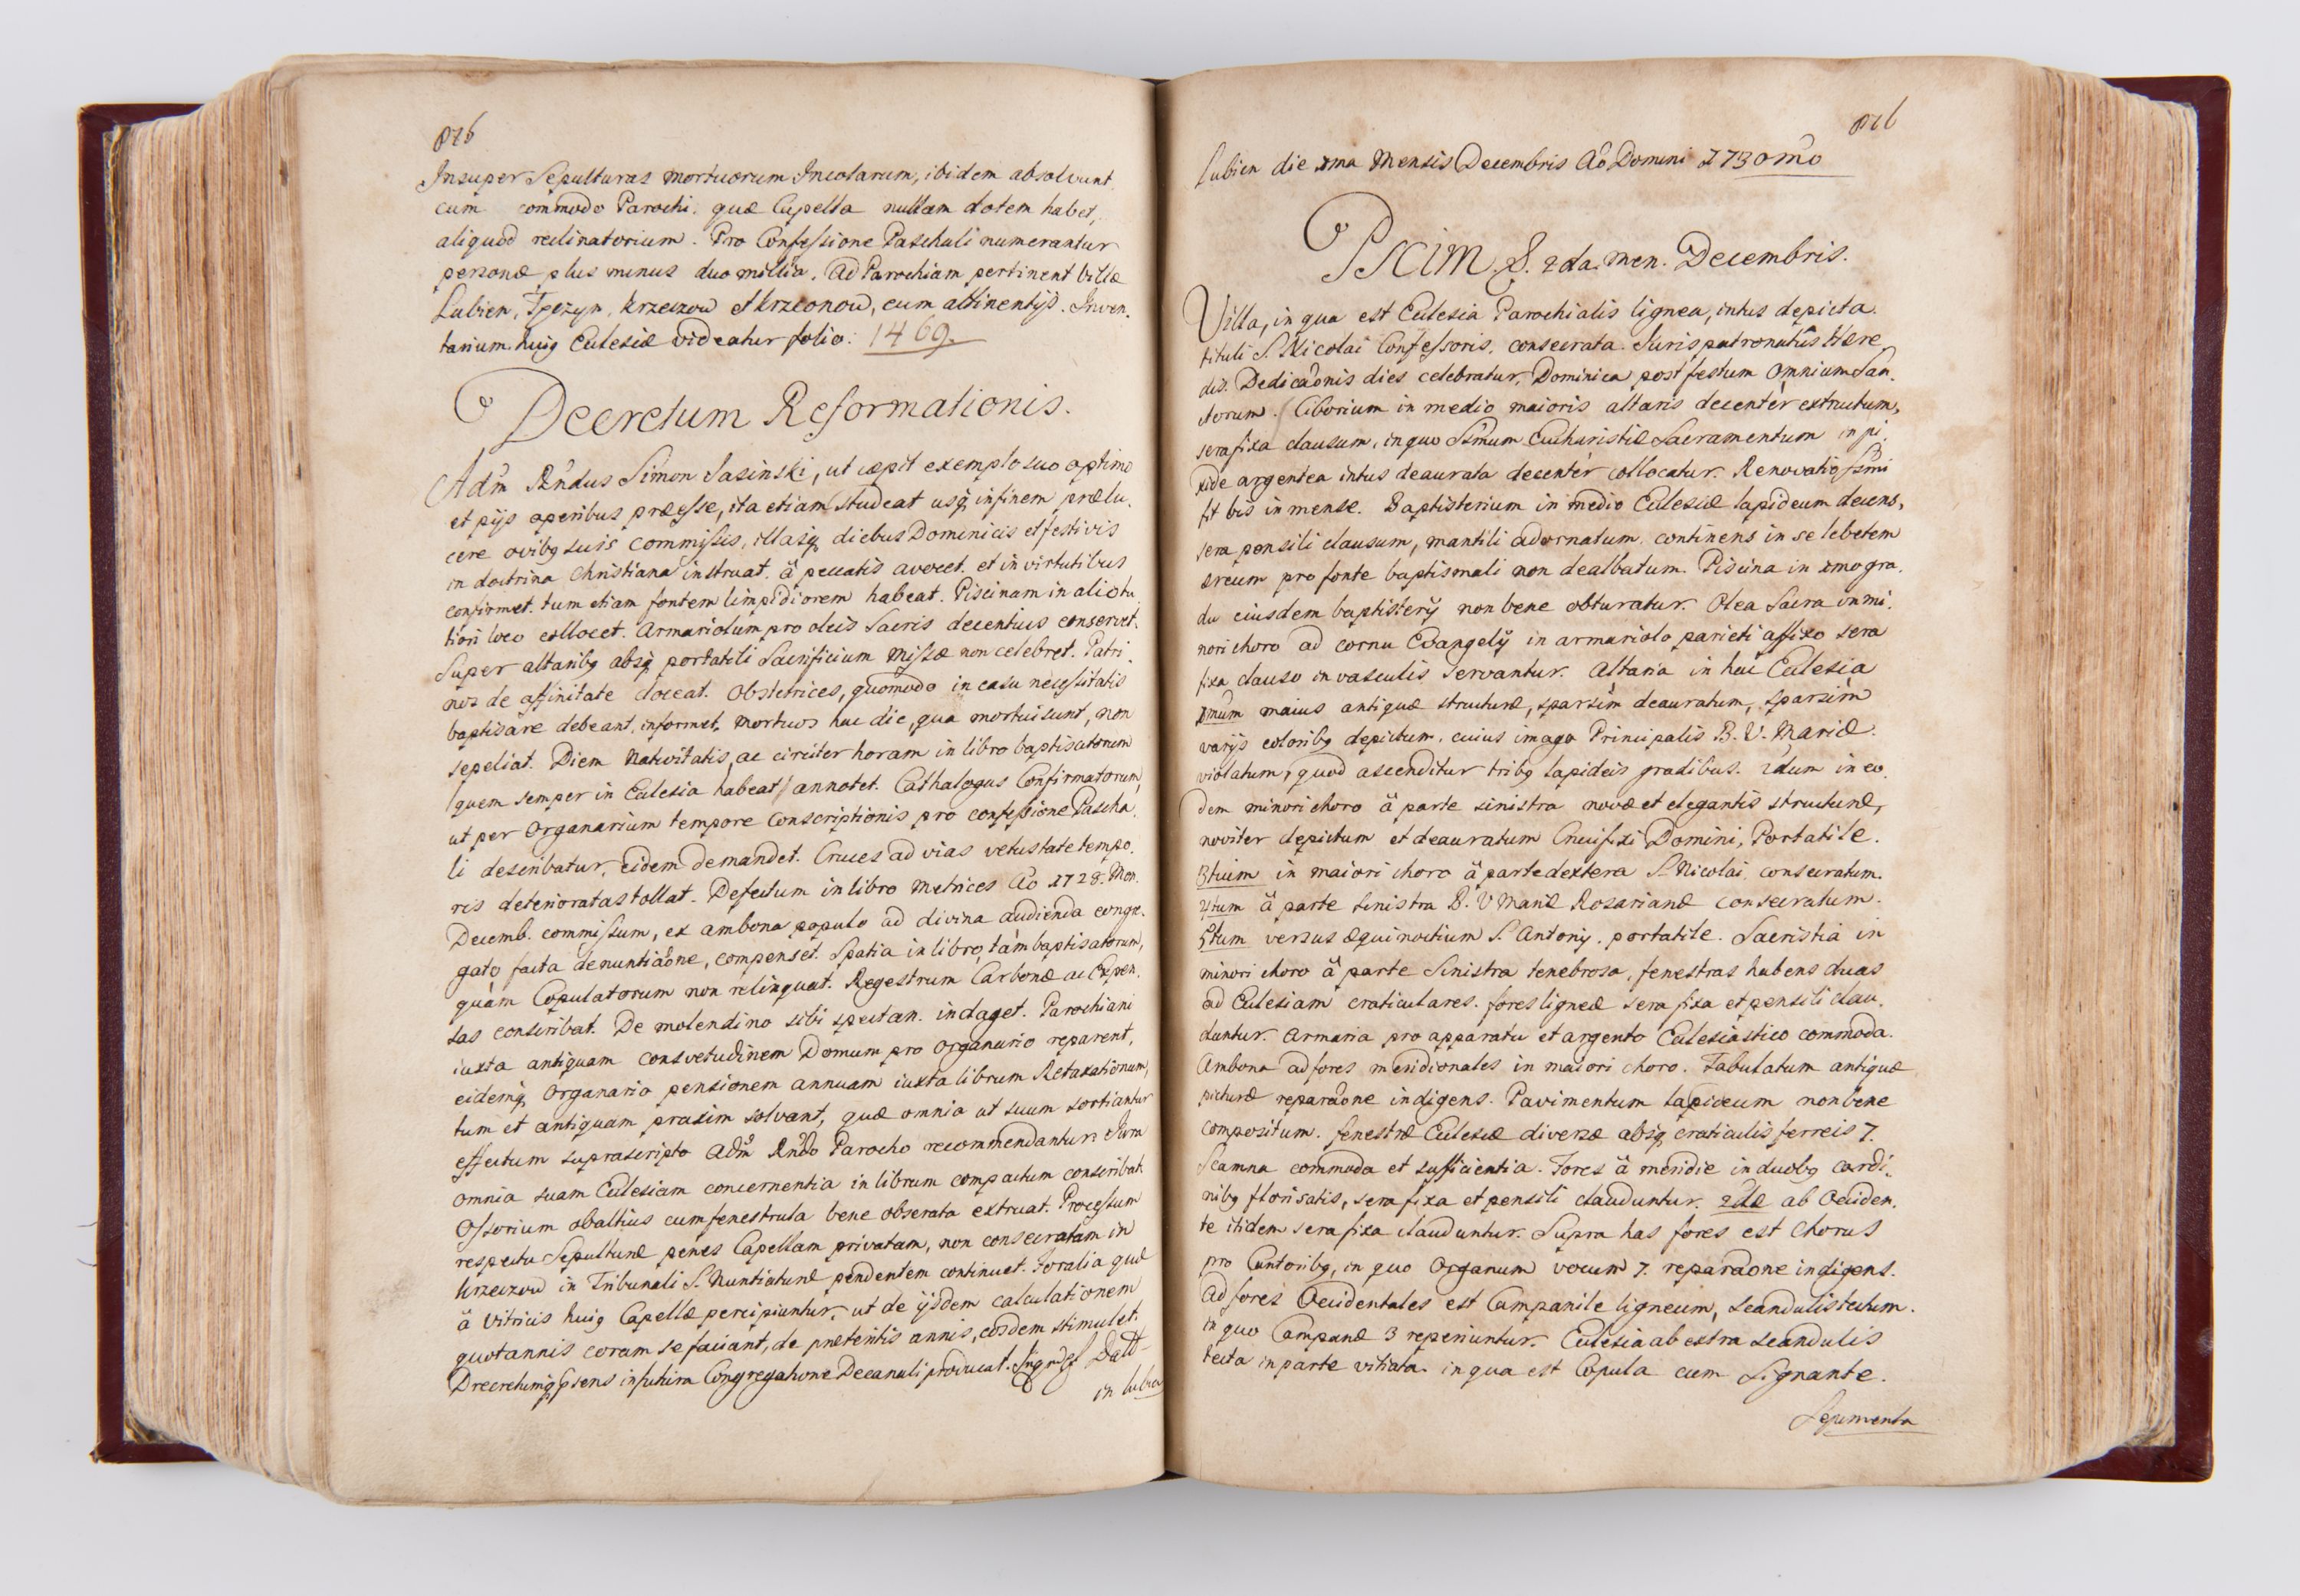 Insuper Sepulturas mortuorum Incolarum, ibidem absolvunt
cum commodo Parochi. quæ Capella nullam dotem habet,
aliquod reclinatorium. Pro Confessione Paschali numerantur
personæ plus minus duo millia. Ad Parochiam pertinent Villæ
Lubien, Tęczyn, Krzeczow et Krzeonow, cum attinentijs. Inven.
tarium huig Eclesiæ videatur folio: 1469.
Decretum Reformationis.
Adm̃ Rñdus Simon Jasinski, ut cæpit exemplo suo optimo
et pijs operibus præesse, ita etiam studeat usq, in finem prælu.
cere ovibg suis commissis, illasq, diebus Dominicis et festivis
in doctrina Christiana instruat. à peccatis avocet. et in virtutibus
confirmet. tum etiam fontem limpidiorem habeat. Piscinam in alio tu.
tiori loco collocet. Armariolum pro oleis Sacris decentius conservet.
Super altaribg absq, portatili Sacrificium Missæ non celebret. Patri.
nos de affinitate doceat. Obstetrices, quomodo in casu necessitatis
baptisare debeant, informet. Mortuos hac die, qua mortui sunt, non
sepeliat. Diem Nativitatis, ac circiter horam in libro baptisatorum
/quem semper in Eclesia habeat/ annotet. Cathalogus Confirmatorum,
ut per Organarium tempore Conscriptionis pro confessione Pascha.
li describatur, eidem demandet. Cruces ad vias vetustate tempo.
ris deterioratas tollat. Defectum in libro Metrices Ao 1728. Men.
Decemb. commissum, ex ambona populo ad divina audienda congre.
gato facta denuntiaõne, compenset. Spatia in libro, tàm baptisatorum,
quàm Copulatorum non relinquat. Regestrum Carbonæ ac Expen.
sas conscribat. De molendino sibi spectan. indaget. Parochiani
iuxta antiquam consvetudinem Domum pro Organario reparent,
eidemq, Organario pensionem annuam iuxta librum Retaxationum,
tum et antiquam praxim solvant, quæ omnia ut suum sortiantur
effectum suprascripto Adm̃ Rñdo Parocho recommendantur. Jura
omnia suam Eclesiam concernentia in librum compactum conscribat.
Ossorium ob altius cum fenestrula bene obserata extruat. Processum
respectu Sepulturæ penes Capellam privatam, non consecratam in
Krzeczow in Tribunali S. Nuntiaturæ pendentem continuet. Foralia quæ
à Vitricis huig Capellæ percipiuntur, ut de ijsdem calculationem
quotannis coram se faciant, de præteritis annis, eosdem stimulet.
Decretumq, p̃sens in futura Congregatione Decanali producat. Datt
in Lubien
Lubien die xma Mensis Decembris Ao Domini 1730mo
S. 2da. Men. Decembris.
Villa, in qua est Eclesia Parochialis lignea, intus depicta.
tituli S. Nicolai Confessoris, consecrata. Juris patronatûs Hære
dis. Dedicaõnis dies celebratur, Dominica post festum Omnium San.
ctorum. Ciborium in medio maioris altaris decentèr extructum,
sera fixa clausum, in quo Ssmum Eucharistiæ Sacramentum in pi.
xide argentea intus deaurata decentèr collocatur. Renovatio Ssmi
fit bis in mense. Baptisterium in medio Eclesiæ lapideum decens,
sera pensili clausum, mantili adornatum. continens in se lebetem
æreum pro fonte baptismali non dealbatum. Piscina in imo gra.
du eiusdem baptisterij non bene obturatur. Olea Sacra in mi.
nori choro ad cornu Evangelij in armariolo parieti affixo sera
fixa clauso in vasculis servantur. Altaria in hac Eclesia
xmum maius antiquæ structuræ, sparsìm deauratum, sparsìm
varijs coloribg depictum, cuius imago Principalis B. V. Mariæ.
violatum, quod ascenditur tribg lapideis gradibus. 2dum in eo.
dem minori choro à parte sinistra novæ et elegantis structuræ,
noviter depictum et deauratum Crucifixi Domini, Portatile.
3tium in maiori choro à parte dextera S. Nicolai, consecratum.
4tum à parte sinistra B. V Mariæ Rosarianæ consecratum.
5tum versus æquinoctium S. Antonij. portatile. Sacristia in
minori choro à parte sinistra tenebrosa, fenestras habens duas
ad Eclesiam craticulares. fores ligneæ sera fixa et pensili clau.
duntur. Armaria pro apparatu et argento Eclesiastico commoda.
Ambona ad fores meridionales in maiori choro. Tabulatum antiquæ
picturæ reparaõne indigens. Pavimentum lapideum non bene
compositum. fenestræ Eclesiæ diversæ absq, craticulis ferreis 7.
Scamna commoda et sufficientia. Fores à meridie in duobg cardi.
nibg florisatis, sera fixa et pensili clauduntur. 2dæ ab Occiden.
te itidem sera fixa clauduntur. Supra has fores est Chorus
pro Cantoribg, in quo Organum vocum 7. reparaõne indigens.
Ad fores Occidentales est Campanile ligneum, scandulis tectum.
in quo Campanæ 3 reperiuntur. Eclesia ab extra scandulis
tecta in parte vitiata. in qua est Copula cum Signante.
Sepimenta